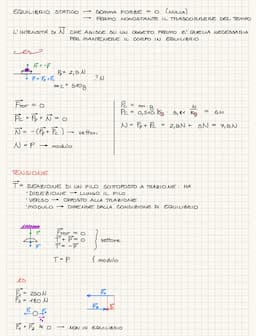 EQUILIBRIO STATICO → SOMMA FORZE = 0 (NULLA)
→ FERMO NONOSTANTE IL TRASCORRERE DEL TEMPO
L'INTENSITÀ DI N CHE AGISCE SU UN OGGETTO FERMO E' QUELLA NECESSARIA
PER MANTENERE IL CORPO IN EQUILIBRIO
es
N = -P
P = P₁ + P₂
P₁ = 2,0N
? N
m₂ = 510g
F tot = 0
P₁ + P₂ + N = 0
N = -(P₁ + P₂) → vettori
N = P → modulo
P₂ = m · g
P₂ = 0,510 kg · 9,81 N/kg = 5N
N = P₁ + P₂ = 2,0N + 5N = 7,0N
TENSIONE
T = REAZIONE DI UN FILO SOTTOPOSTO A TRAZIONE. HA
· DIREZIONE → LUNGO IL FILO
· VERSO → OPPOSTO ALLA TRAZIONE
· MODULO → DIPENDE DALLA CONDIZIONE DI EQUILIBRIO
T
P
F tot = 0
T + P = 0
T = -P
vettore
T = P
modulo
es
= 250N
= 180N
≠ 0 → NON IN EQUILIBRIO